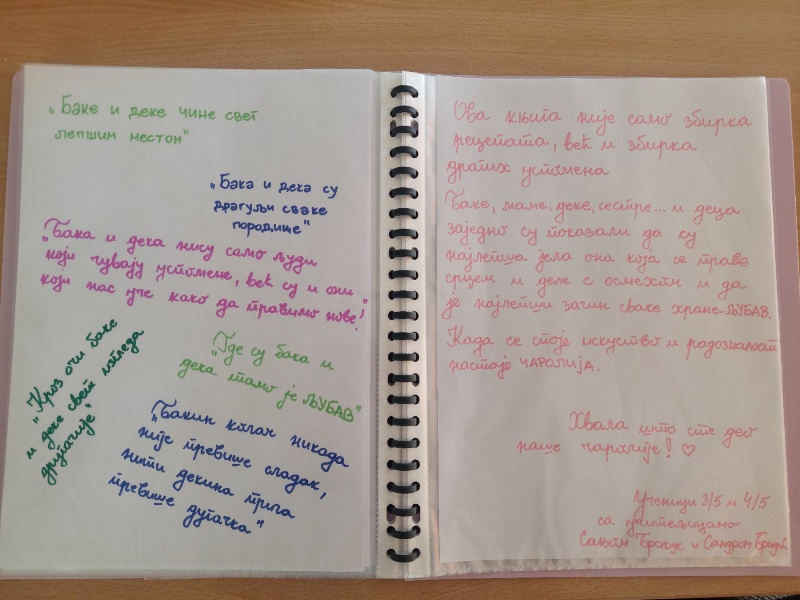 „Баке и деке чине свет
лепшим местом"
„Бака и дека су
драгуљи сваке
породице"
„Бака и дека нису само људи
који чувају успомене, већ су и они
који нас уче како да правимо нове!"
„Где су бака и
дека тамо је ЉУБАВ"
„Кроз очи баке
и деке свет изгледа
другачије"
„Бакин колач никада
није превише сладак,
нити декина прича
превише дугачка"
Ова књига није само збирка
рецепата, већ и збирка
драгих успомена
Баке, маме, деке, сестре... и деца
заједно су показали да су
најлепша јела она која се праве
срцем и деле с осмехом и да
је најлепши зачин сваке хране-ЉУБАВ.
Када се споје искуство и радозналост
настаје ЧАРОЛИЈА.
Хвала што сте део
наше чаролије! ♡
Ученици 3/5 и 4/5
са учитељицама
и Сандром